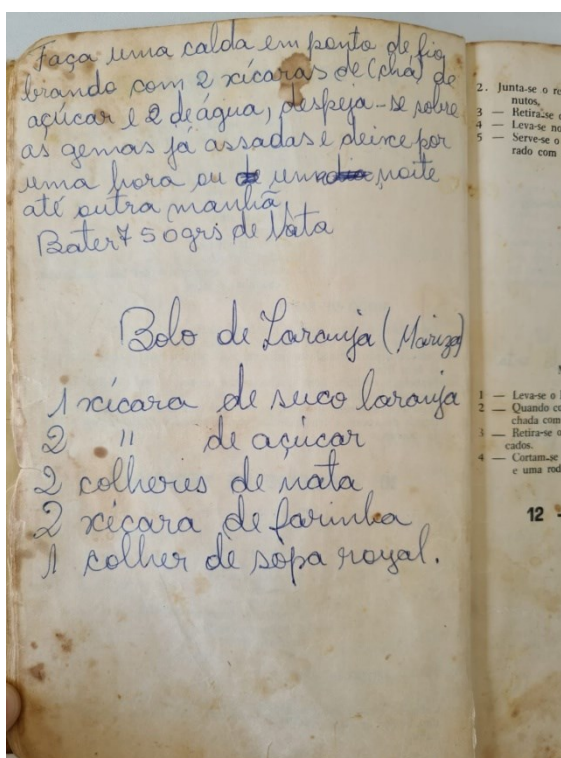 Faça uma calda em ponto de fio
brando com 2 xícaras de (chá) de
açúcar e 2 de água, despeja-se sobre
as gemas já assadas e deixe por
uma hora ou uma noite
até outra manhã,
Bater 750grs de Nata
Bolo de Laranja (Mariza)
1 xícara de suco laranja
2 " de açúcar
2 colheres de nata
2 xícara de farinha
1 colher de sopa royal.
2. Junta-se o
nutos,
3 — Retira-se
4 — Leva-se no
5 — Serve-se o
rado com
1 — Leva-se o
2 — Quando
chada com
3 — Retira-se o
cados.
4 — Cortam-se
e uma
12